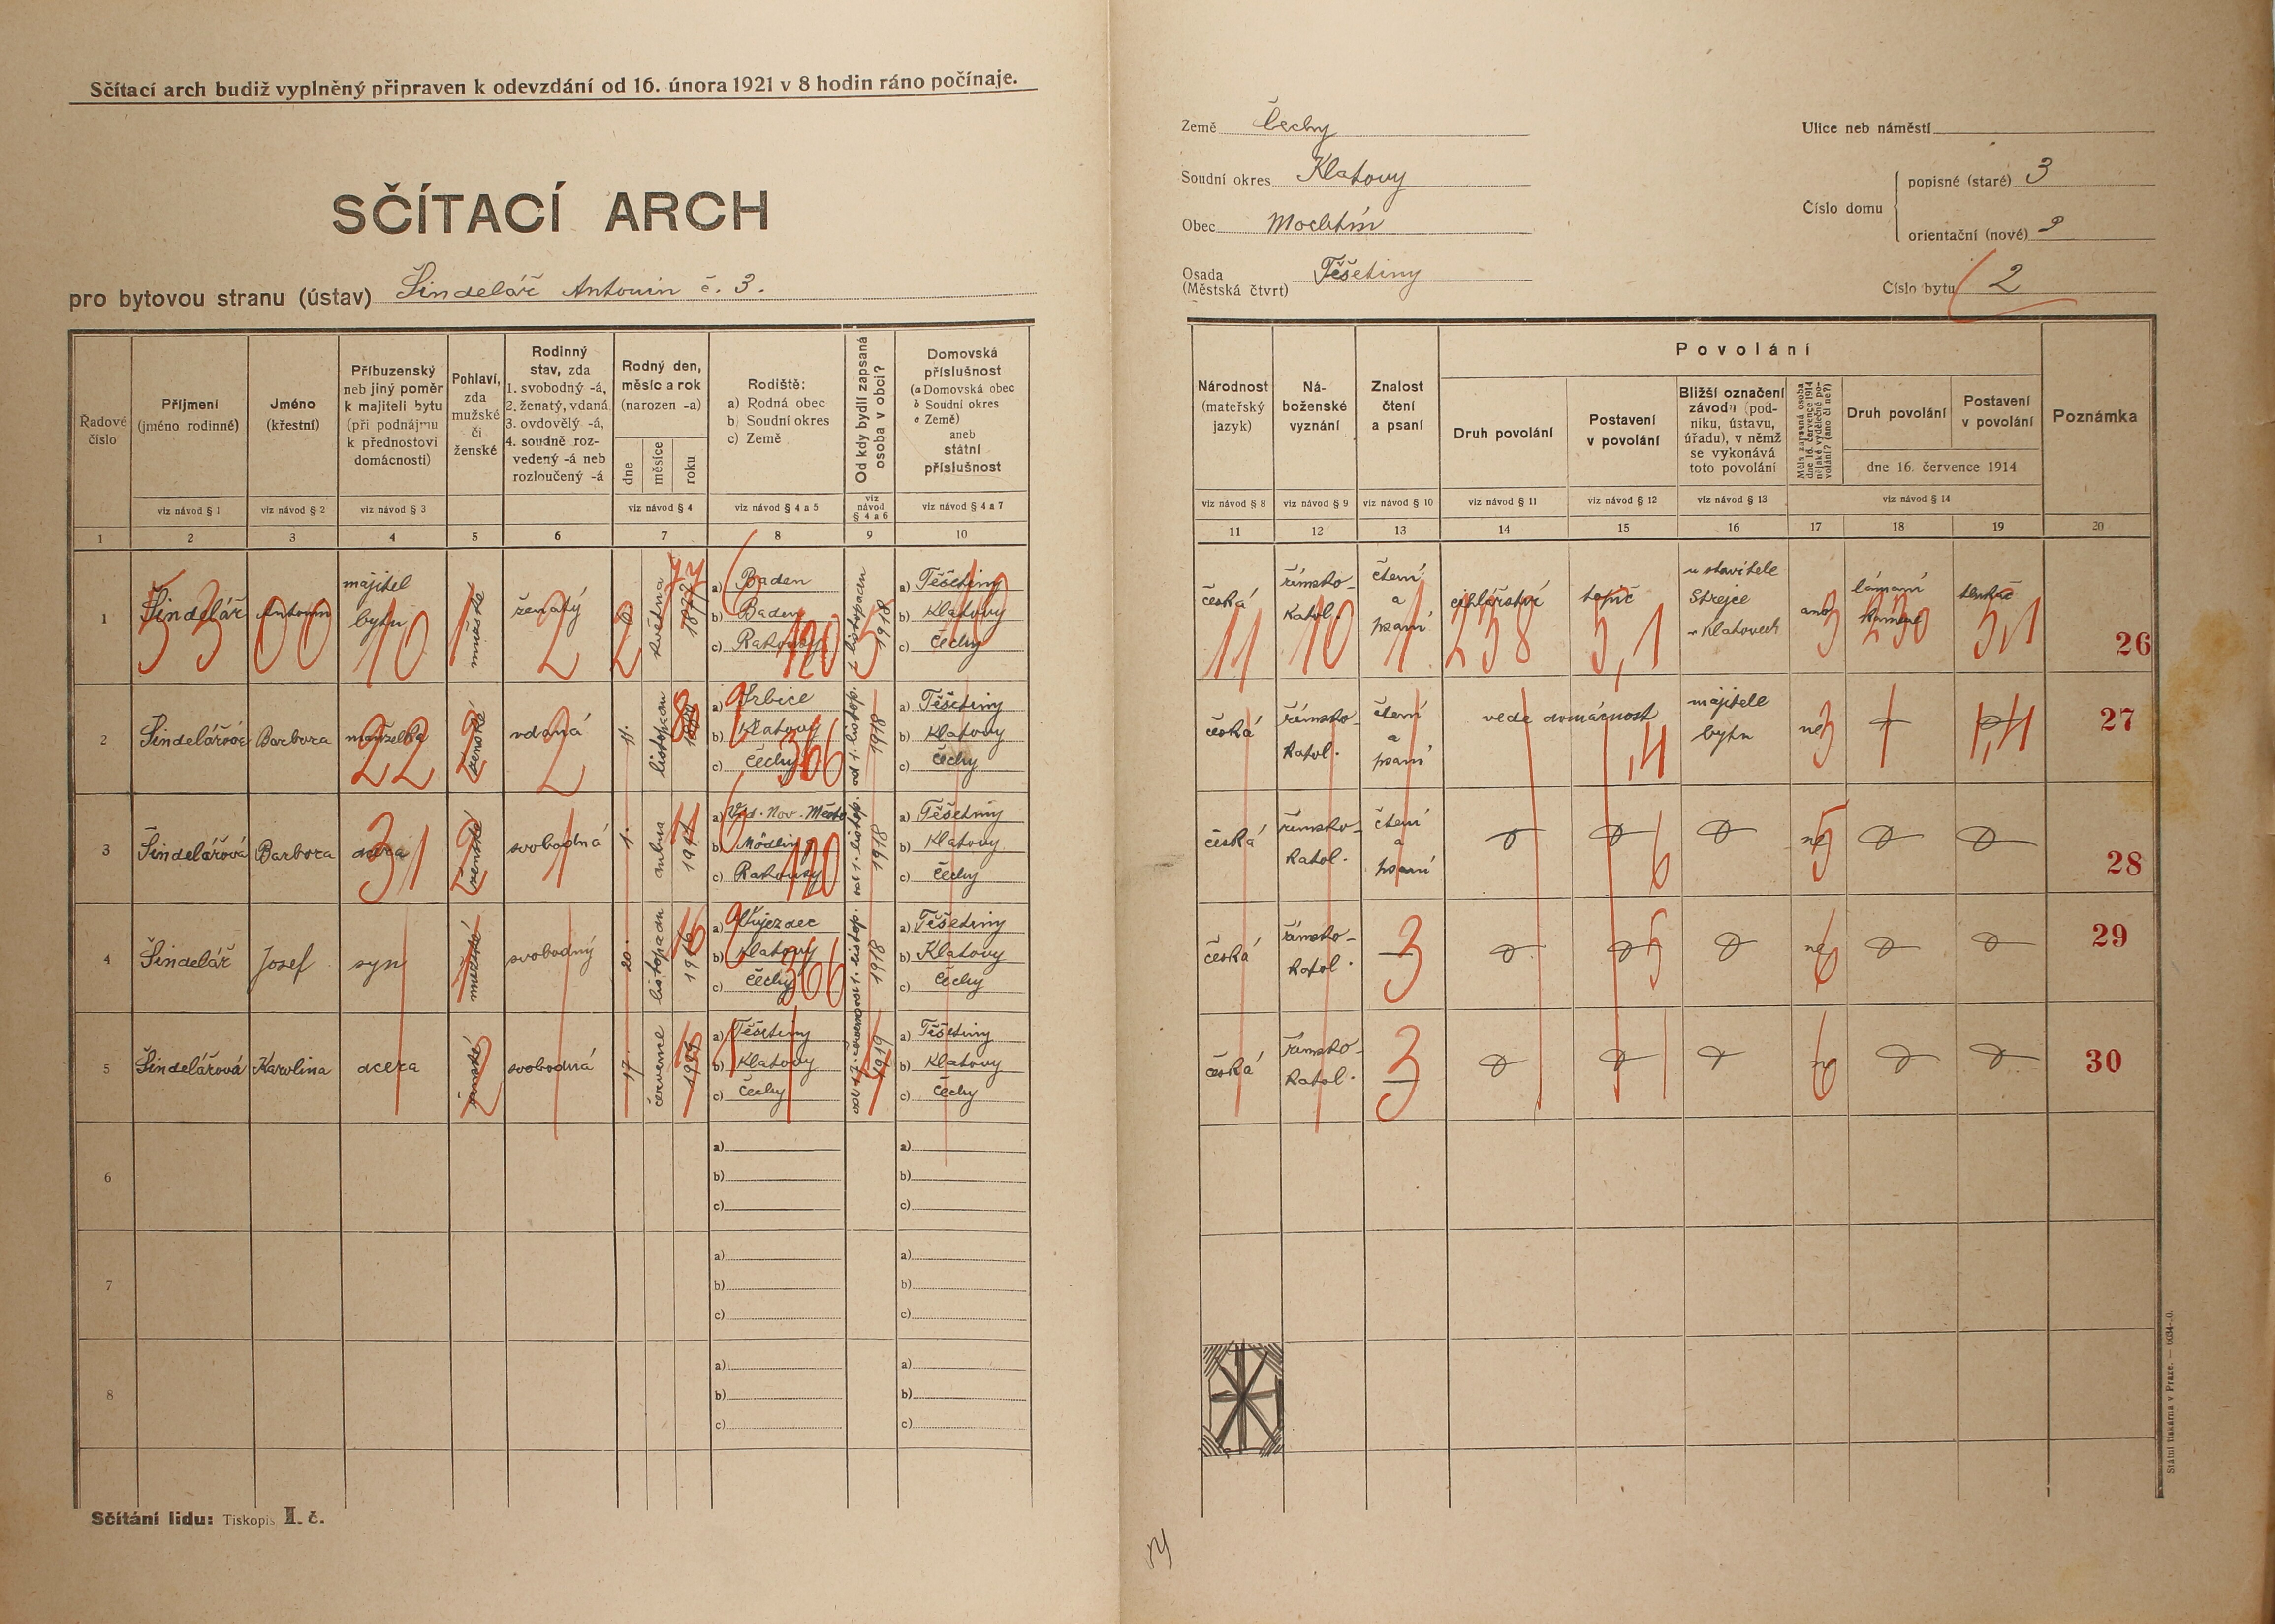 Sčítací arch budiž vyplněný připraven k odevzdání od 16. února 1921 v 8 hodin ráno počínaje.
SČÍTACÍ ARCH
pro bytovou stranu (ústav) Šindelář Antonín č. 3.
Země Čechy
Soudní okres Klatovy
Obec Mochtín
Osada (Městská čtvrt) Těšetiny
Ulice neb náměstí
Číslo domu
popisné (staré) 3
orientační (nové)
Číslo bytu 2
Řadové číslo
Příjmení (jméno rodinné)
Jméno (křestní)
Příbuzenský neb jiný poměr k majiteli bytu (při podnájmu k přednostovi domácnosti)
Pohlaví, zda mužské či ženské
Rodinný stav, zda 1. svobodný -á, 2. ženatý, vdaná 3. ovdovělý -á, 4. soudně rozvedený -á neb rozloučený -á
Rodný den, měsíc a rok (narozen -a)
dne
měsíce
roku
Rodiště: a) Rodná obec b) Soudní okres c) Země
Od kdy bydlí zapsaná osoba v obci?
Domovská příslušnost (a Domovská obec b Soudní okres c Země) aneb státní příslušnost
Národnost (mateřský jazyk)
Náboženské vyznání
Znalost čtení a psaní
Povolání
Druh povolání
Postavení v povolání
Bližší označení závodu (podniku, ústavu, úřadu), v němž se vykonává toto povolání
Měla zapsaná osoba dne 16. července 1914 nějaké výdělečné povolání? (ano či ne?)
Druh povolání
Postavení v povolání
dne 16. července 1914
Poznámka
viz návod § 1
viz návod § 2
viz návod § 3
viz návod § 4
viz návod § 4 a 5
viz návod § 4 a 6
viz návod § 4 a 7
viz návod § 8
viz návod § 9
viz návod § 10
viz návod § 11
viz návod § 12
viz návod § 13
viz návod § 14
1 2 3 4 5 6 7 8 9 10 11 12 13 14 15 16 17 18 19 20
1 Šindelář Antonín majitel bytu mužské ženatý května 1877
a) Baden
b) Baden
c) Rakousy
1. listopadu 1918
a) Těšetiny
b) Klatovy
c) Čechy
česká římsko-katol. čtení a psaní cihlářství topič u stavitele Strejce v Klatovech ano lámání kamene 26
53 00 10 1 2 2 77 120 5 10 11 10 1 238 5,1 3 230 5,1
2 Šindelářová Barbora manželka ženské vdaná 11. listopadu
a) Vrbice
b) Klatovy
c) Čechy
od 1. listop. 1918
a) Těšetiny
b) Klatovy
c) Čechy
česká římsko-katol. čtení a psaní vede domácnost majitele bytu ne 27
22 2 2 366 3
3 Šindelářová Barbora dcera ženské svobodná 1. dubna 1911
a) Víd. Nov. Město
b) Mödling
c) Rakousy
od 1. listop. 1918
a) Těšetiny
b) Klatovy
c) Čechy
česká římsko-katol. čtení a psaní ne 28
31 2 1 11 120 6 5
4 Šindelář Josef syn mužské svobodný 20. listopadu 1916
a) Újezdec
b) Klatovy
c) Čechy
od 1. listop. 1918
a) Těšetiny
b) Klatovy
c) Čechy
česká římsko-katol. — ne 29
16 366 3 5 6
5 Šindelářová Karolina dcera ženské svobodná 17. července 1919
a) Těšetiny
b) Klatovy
c) Čechy
od 17. července 1919
a) Těšetiny
b) Klatovy
c) Čechy
česká římsko-katol. — ne 30
2 3 6
6
a)
b)
c)
a)
b)
c)
7
a)
b)
c)
a)
b)
c)
8
a)
b)
c)
a)
b)
c)
Sčítání lidu: Tiskopis II. č.
Státní tiskárna v Praze. — 6034-0.